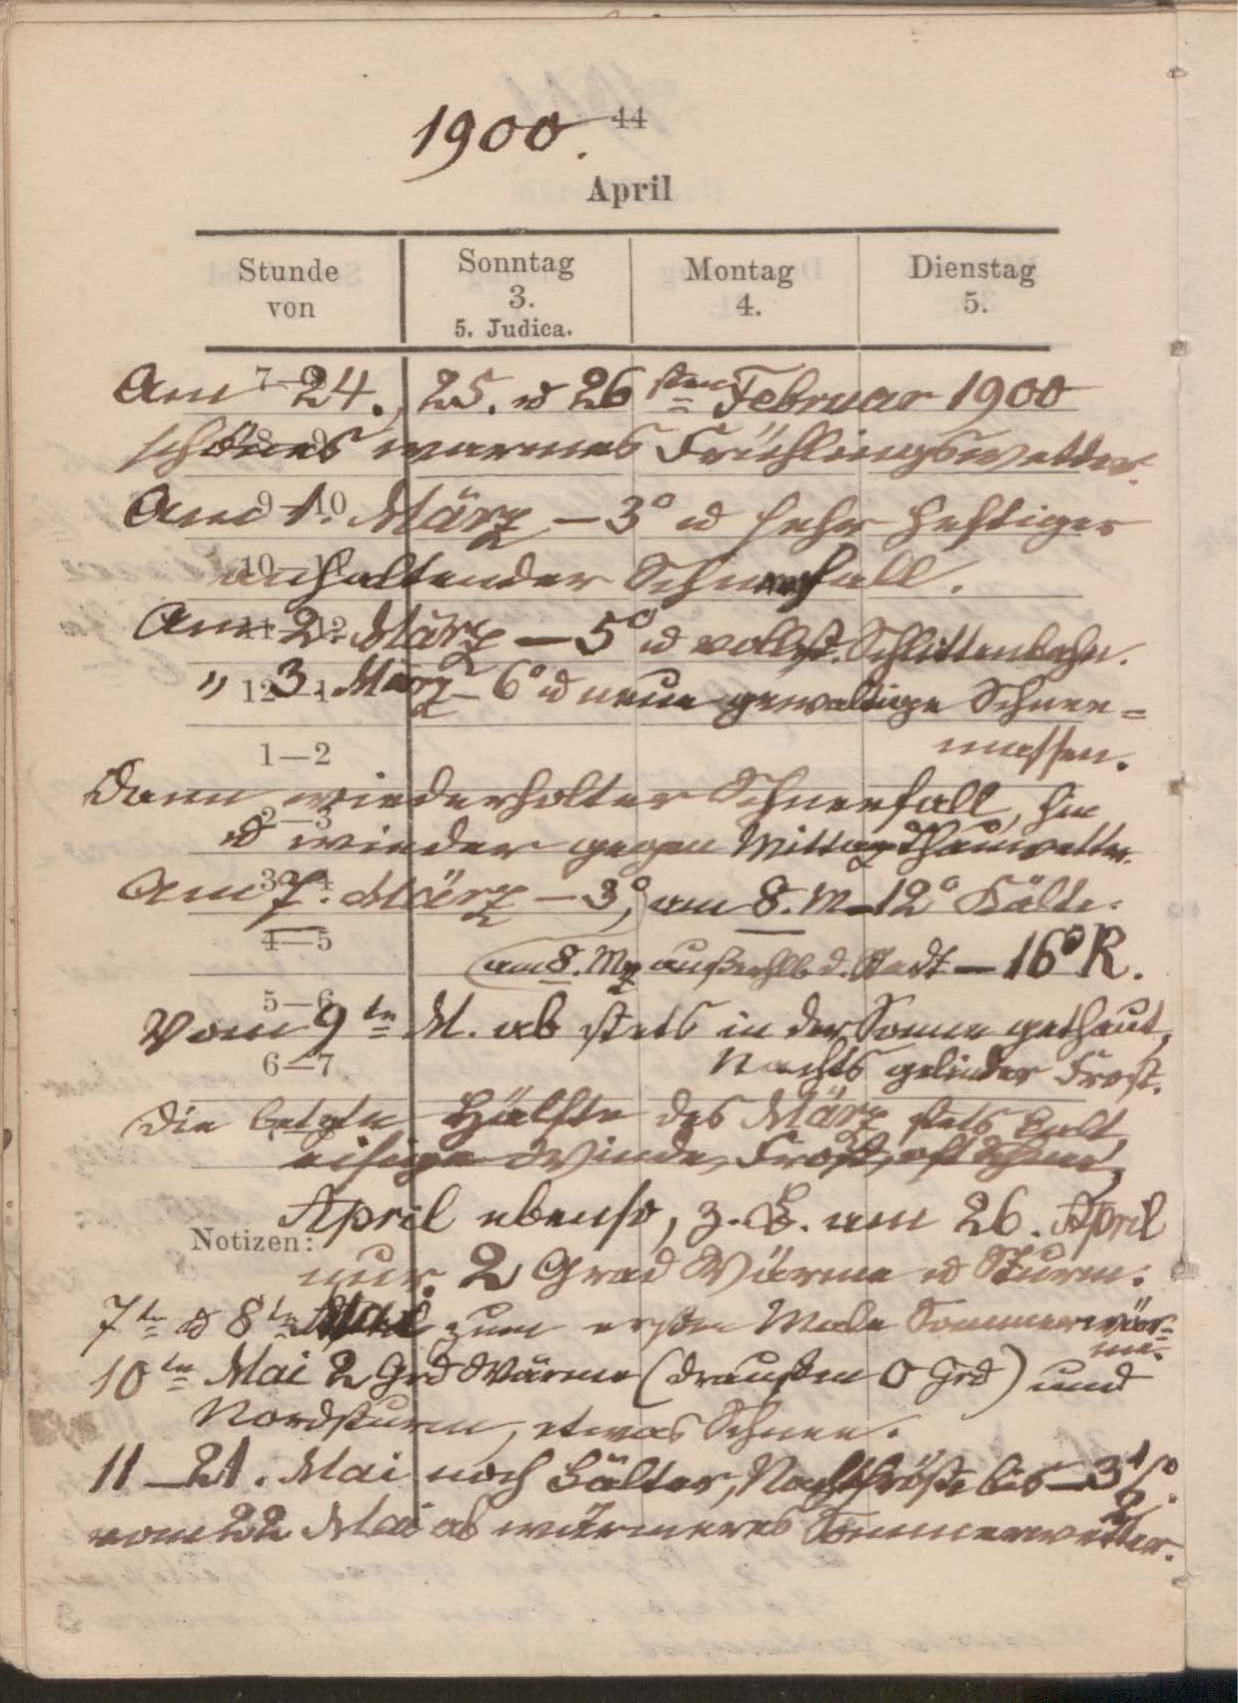 1900. 44
April
Stunde von
Sonntag 3. 5. Judica.
Montag 4.
Dienstag 5.
7—8
Am 24., 25. u 26sten Februar 1900
8—9
schönes warmes Frühlingswetter.
9—10
Am 1. März – 3° u sehr heftiger
10—11
anhaltender Schneefall.
11—12
Am 2. März – 5° u vollst. Schlittenbahn.
12—1
" 3. März – 6° u neue gewaltige Schnee=
1—2
massen.
Dann wiederholter Schneefall, hin
2—3
u wieder gegen Mittag Thauwetter.
3—4
Am 7. März – 3°, am 8. M – 12° Kälte.
4—5
(am 8. Mz außerhlb d. Stadt – 16° R.
5—6
Vom 9ten M. ab stets in der Sonne gethaut,
6—7
Nachts gelinder Frost.
Die letzte Hälfte des März stets kalt,
eisige Winde, Frost, oft Schnee,
April ebenso, z. B. am 26. April
Notizen:
nur 2 Grad Wärme u Sturm.
7ten u 8ten Mai zum ersten Male Sommerwär=
me.
10ten Mai 2 Grd Wärme (draußen 0 Grd) und
Nordsturm, etwas Schnee.
11 – 21. Mai noch kälter, Nachtfröste bis – 3 1/2°.
vom 22 Mai ab wärmeres Sommerwetter.